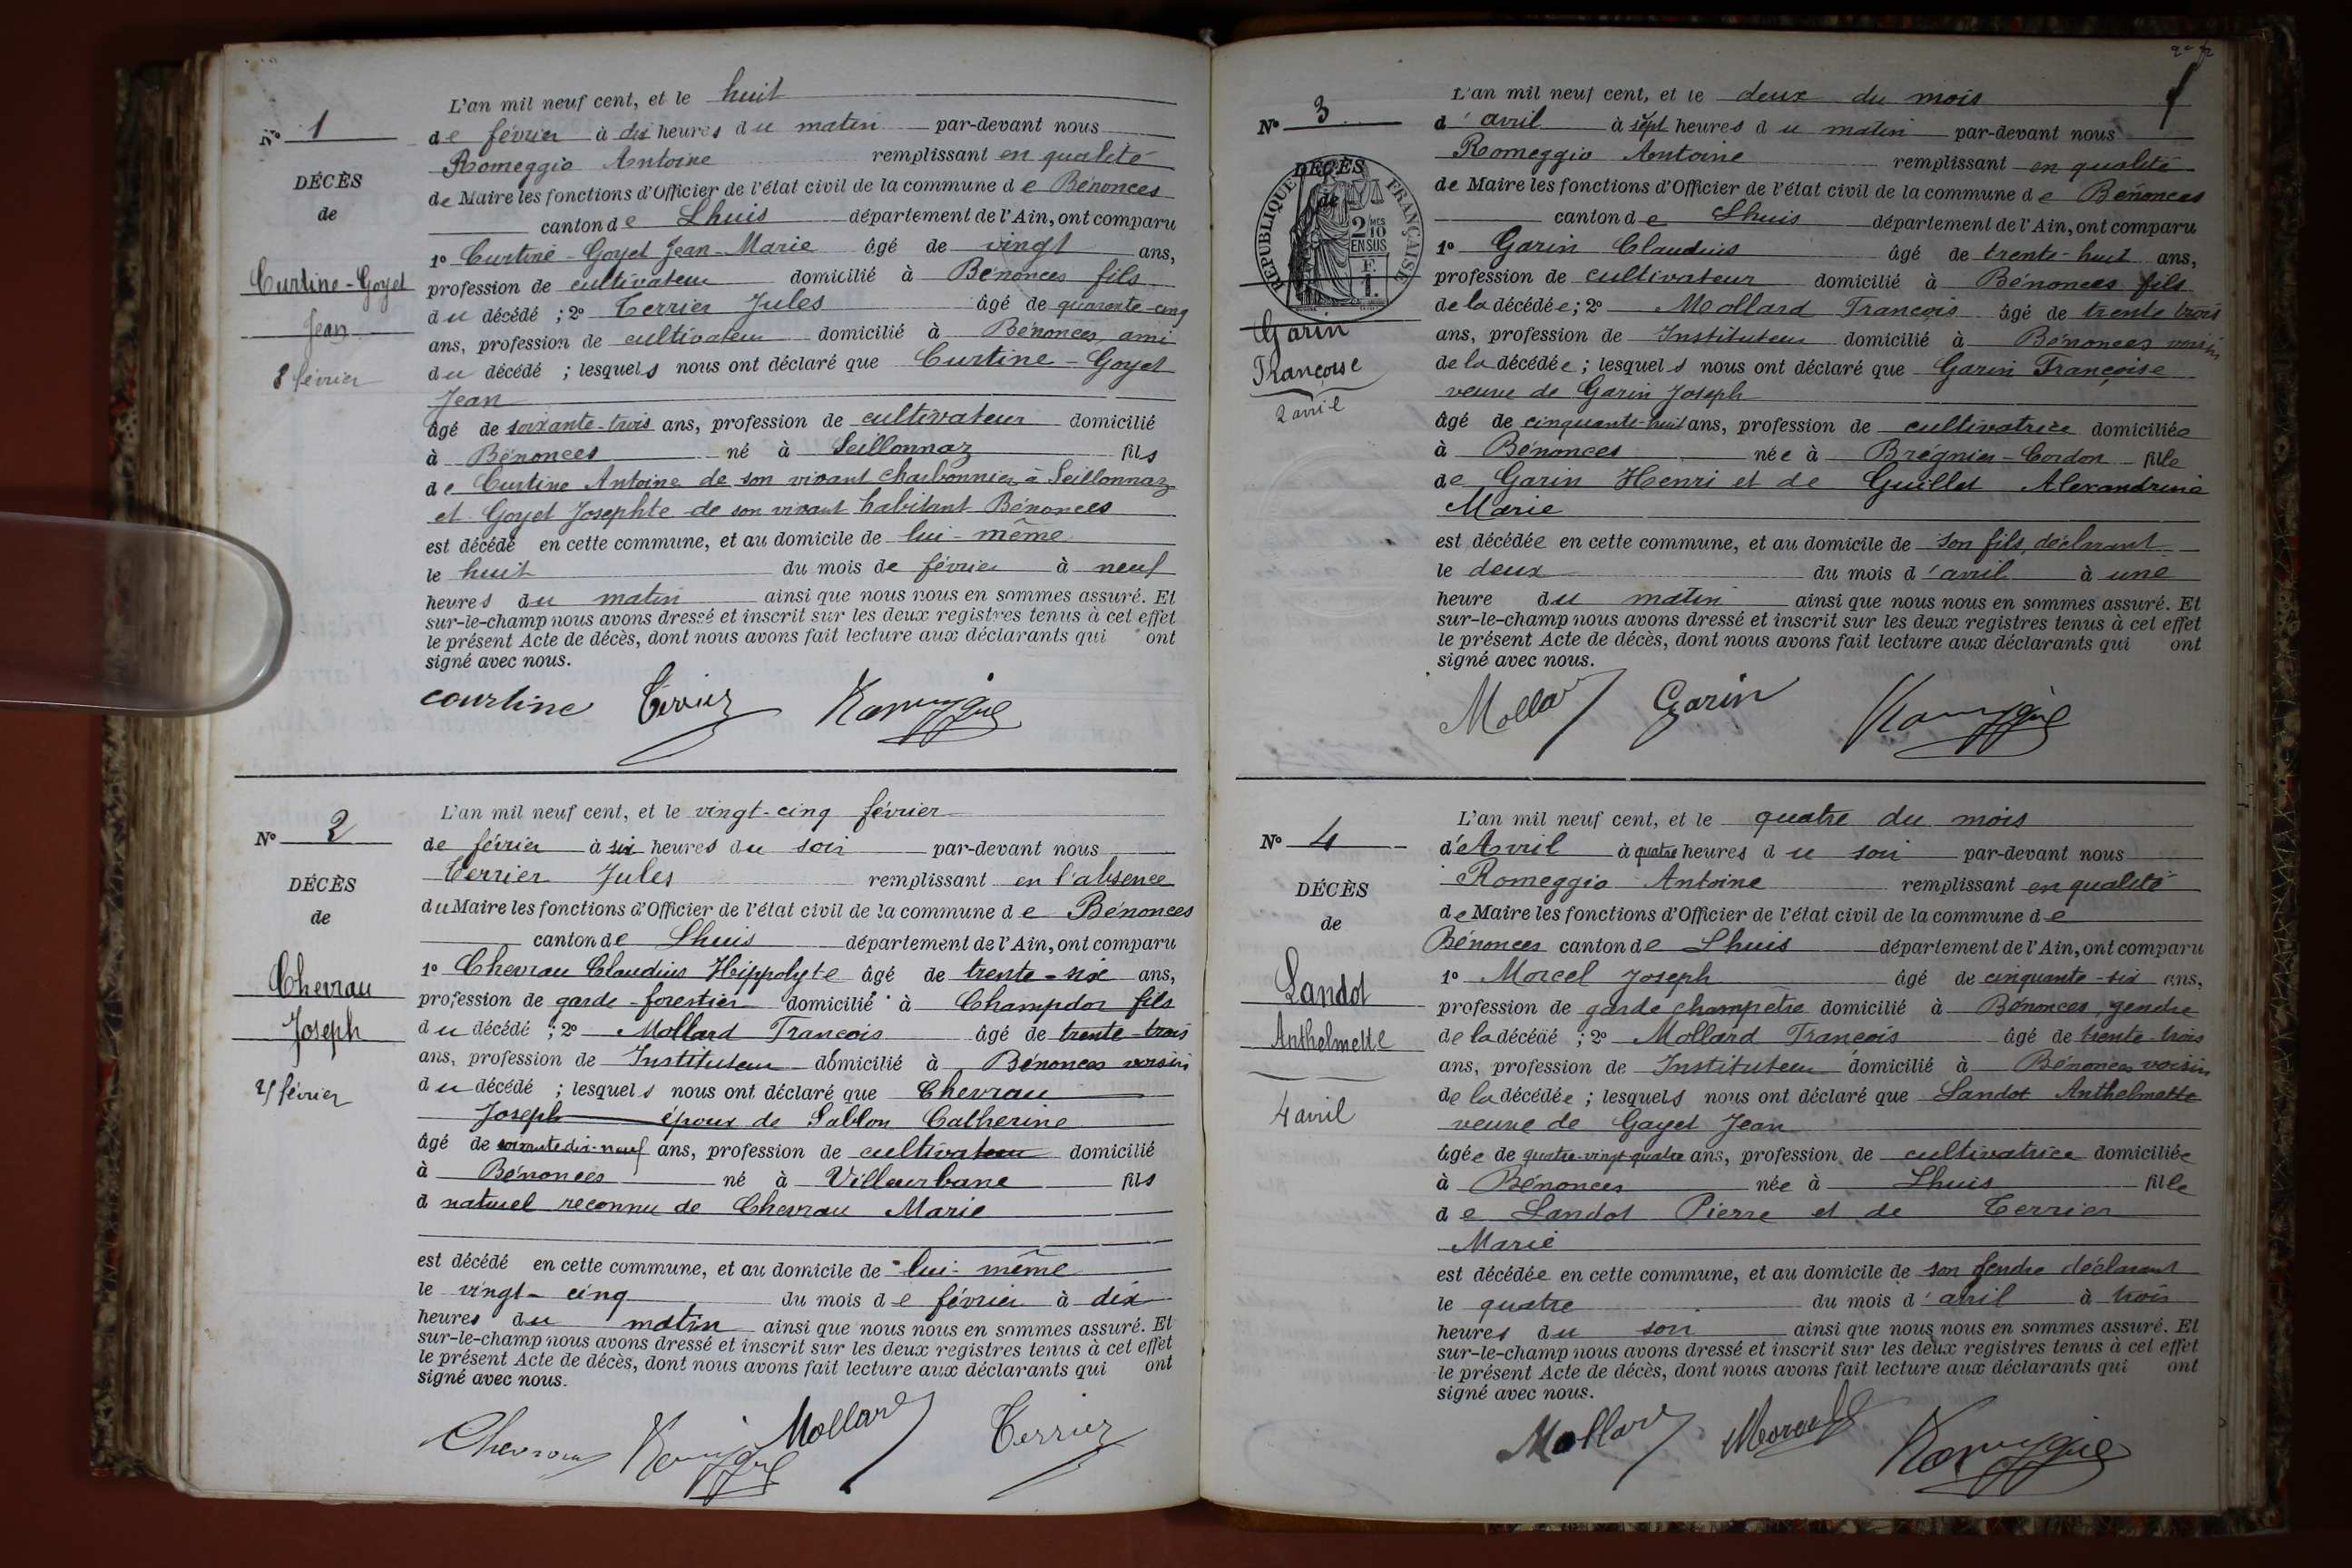 L'an mil neuf cent, et le huit
N° 1
de février à dix heures du matin par-devant nous
Romeggio Antoine remplissant en qualité
DÉCÈS
de Maire les fonctions d'Officier de l'état civil de la commune de Bénonces
de
canton de Lhuis département de l'Ain, ont comparu
1° Curtine-Goyet Jean-Marie âgé de vingt ans,
Curtine-Goyet
profession de cultivateur domicilié à Bénonces fils
Jean
du décédé ; 2° Terrier Jules âgé de quarante-cinq
ans, profession de cultivateur domicilié à Bénonces, ami
8 février
du décédé ; lesquels nous ont déclaré que Curtine-Goyet
Jean
âgé de soixante-trois ans, profession de cultivateur domicilié
à Bénonces né à Seillonnaz fils
de Curtine Antoine de son vivant charbonnier à Seillonnaz
et Goyet Josephte de son vivant habitant Bénonces
est décédé en cette commune, et au domicile de lui-même
le huit du mois de février à neuf
heures du matin ainsi que nous nous en sommes assuré. Et
sur-le-champ nous avons dressé et inscrit sur les deux registres tenus à cet effet
le présent Acte de décès, dont nous avons fait lecture aux déclarants qui ont
signé avec nous.
courtine Terrier Romeggio
L'an mil neuf cent, et le vingt-cinq février
N° 2
de février à six heures du soir par-devant nous
Terrier Jules remplissant en l'absence
DÉCÈS
du Maire les fonctions d'Officier de l'état civil de la commune de Bénonces
de
canton de Lhuis département de l'Ain, ont comparu
1° Chevrau Claudius Hippolyte âgé de trente-six ans,
Chevrau
profession de garde-forestier domicilié à Champdor fils
Joseph
du décédé ; 2° Mollard François âgé de trente-trois
ans, profession de Instituteur domicilié à Bénonces voisin
février
du décédé ; lesquels nous ont déclaré que Chevrau
Joseph époux de Sablon Catherine
âgé de soixante dix-neuf ans, profession de cultivateur domicilié
à Bénonces né à Villeurbane fils
d naturel reconnu de Chevrau Marie
est décédé en cette commune, et au domicile de lui-même
le vingt-cinq du mois de février à dix
heures du matin ainsi que nous nous en sommes assuré. Et
sur-le-champ nous avons dressé et inscrit sur les deux registres tenus à cet effet
le présent Acte de décès, dont nous avons fait lecture aux déclarants qui ont
signé avec nous.
Chevrau Romeggio Mollard Terrier
L'an mil neuf cent, et le deux du mois
N° 3
d'avril à sept heures du matin par-devant nous
Romeggio Antoine remplissant en qualité
DÉCÈS
de
RÉPUBLIQUE FRANÇAISE
2/10 MES
EN SUS
F.
1.
de Maire les fonctions d'Officier de l'état civil de la commune de Bénonces
canton de Lhuis département de l'Ain, ont comparu
1° Garin Claudius âgé de trente-huit ans,
profession de cultivateur domicilié à Bénonces fils
de la décédée ; 2° Mollard François âgé de trente trois
Garin
ans, profession de Instituteur domicilié à Bénonces voisin
Françoise
de la décédée ; lesquels nous ont déclaré que Garin Françoise
2 avril
veuve de Garin Joseph
âgé de cinquante-huit ans, profession de cultivatrice domiciliée
à Bénonces née à Brégnier-Cordon fille
de Garin Henri et de Guillet Alexandrine
Marie
est décédée en cette commune, et au domicile de son fils, déclarant
le deux du mois d'avril à une
heure du matin ainsi que nous nous en sommes assuré. Et
sur-le-champ nous avons dressé et inscrit sur les deux registres tenus à cet effet
le présent Acte de décès, dont nous avons fait lecture aux déclarants qui ont
signé avec nous.
Mollard Garin Romeggio
L'an mil neuf cent, et le quatre du mois
N° 4
d'Avril à quatre heures du soir par-devant nous
Romeggio Antoine remplissant en qualité
DÉCÈS
de Maire les fonctions d'Officier de l'état civil de la commune de
de
Bénonces canton de Lhuis département de l'Ain, ont comparu
1° Morcel Joseph âgé de cinquante-six ans,
Landot
profession de garde champêtre domicilié à Bénonces, gendre
Anthelmette
de la décédé ; 2° Mollard François âgé de trente-trois
ans, profession de Instituteur domicilié à Bénonces voisin
4 avril
de la décédée ; lesquels nous ont déclaré que Landot Anthelmette
veuve de Gayet Jean
âgée de quatre-vingt-quatre ans, profession de cultivatrice domiciliée
à Bénonces née à Lhuis fille
de Landot Pierre et de Terrier
Marie
est décédée en cette commune, et au domicile de son gendre déclarant
le quatre du mois d'avril à trois
heures du soir ainsi que nous nous en sommes assuré. Et
sur-le-champ nous avons dressé et inscrit sur les deux registres tenus à cet effet
le présent Acte de décès, dont nous avons fait lecture aux déclarants qui ont
signé avec nous.
Mollard Morcel Romeggio